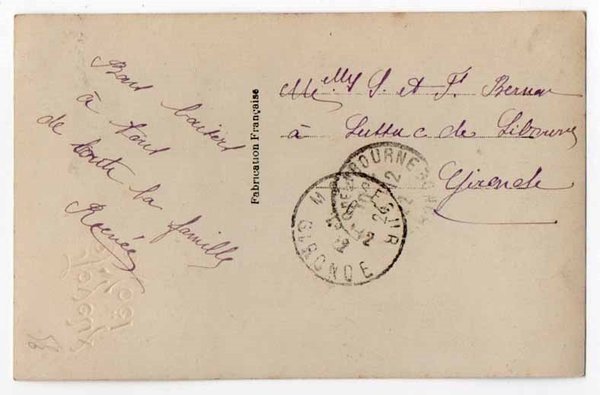 Bons baisers
à tous
de toute la famille
Renée
Fabrication Française
M^elles S. et F. Bernon
à Lussac de Libourne
Gironde
LIBOURNE
GIRONDE